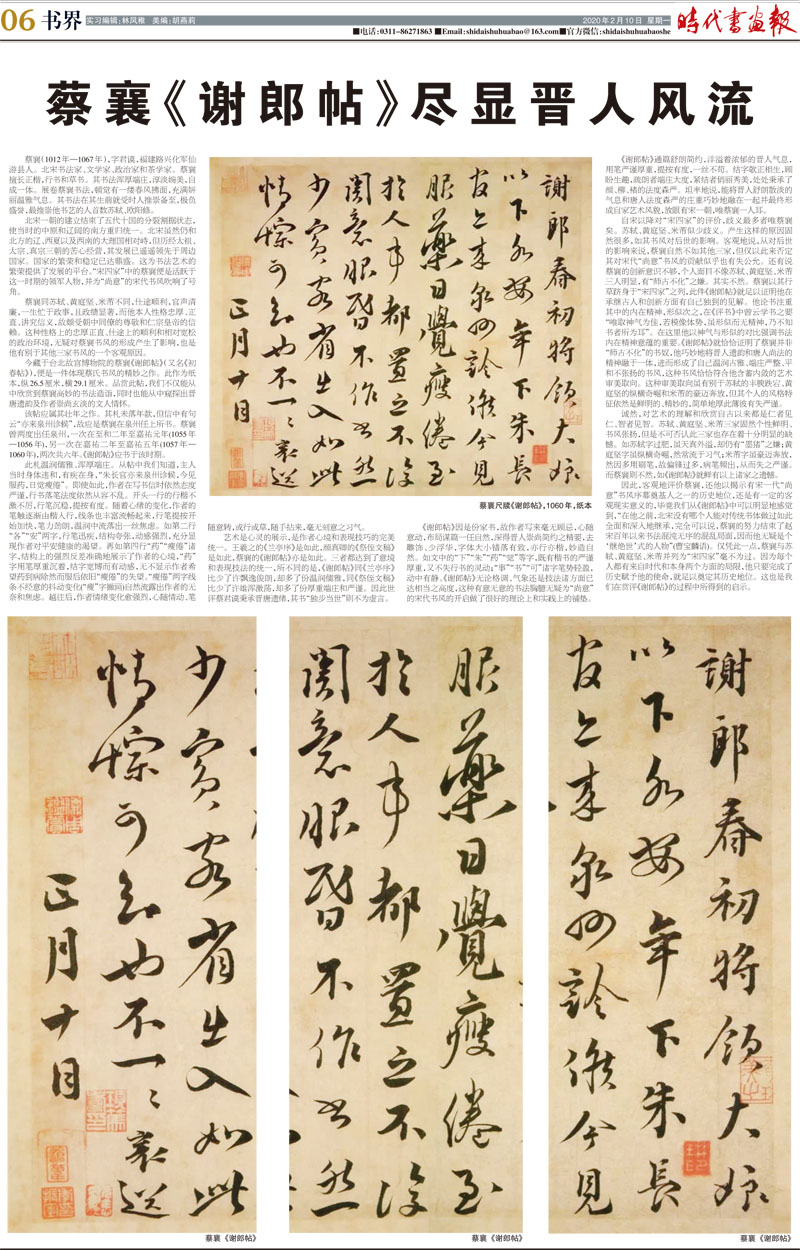 06 书界
实习编辑:林凤稚 美编:胡燕莉
2020年2月10日 星期一
■电话:0311-86271863 ■Email:shidaishuhuabao@163.com■官方微信:shidaishuhuabaoshe
时代书画报
蔡襄《谢郎帖》尽显晋人风流
蔡襄(1012年—1067年),字君谟,福建路兴化军仙
游县人。北宋书法家、文学家、政治家和茶学家。蔡襄
擅长正楷,行书和草书。其书法浑厚端庄,淳淡婉美,自
成一体。展卷蔡襄书法,顿觉有一缕春风拂面,充满妍
丽温雅气息。其书法在其生前就受时人推崇备至,极负
盛誉,最推崇他书艺的人首数苏轼、欧阳修。
北宋一朝的建立结束了五代十国的分裂割据状态,
使当时的中原和辽阔的南方重归统一。北宋虽然仍和
北方的辽、西夏以及西南的大理国相对峙,但历经太祖、
太宗、真宗三朝的苦心经营,其发展已遥遥领先于周边
国家。国家的繁荣和稳定已达鼎盛。这为书法艺术的
繁荣提供了发展的平台。“宋四家”中的蔡襄便是活跃于
这一时期的领军人物,并为“尚意”的宋代书风吹响了号
角。
蔡襄同苏轼、黄庭坚、米芾不同,仕途顺利,官声清
廉,一生忙于政事,且政绩显著,而他本人性格忠厚、正
直,讲究信义,故颇受朝中同僚的尊敬和仁宗皇帝的信
赖。这种性格上的忠厚正直、仕途上的顺利和相对宽松
的政治环境,无疑对蔡襄书风的形成产生了影响,也是
他有别于其他三家书风的一个客观原因。
今藏于台北故宫博物院的蔡襄《谢郎帖》(又名《初
春帖》),便是一件体现蔡氏书风的精妙之作。此作为纸
本,纵26.5厘米,横29.1厘米。品赏此帖,我们不仅能从
中欣赏到蔡襄高妙的书法造函,同时也能从中窥探出晋
唐遗韵及作者崇尚玄淡的文人情怀。
该帖应属其壮年之作。其札未落年款,但信中有句
云“亦来泉州诊候”,故应是蔡襄在泉州任上所书。蔡襄
曾两度出任泉州,一次在至和二年至嘉祐元年(1055年
—1056年),另一次在嘉祐二年至嘉祐五年(1057年—
1060年),两次共六年,《谢郎帖》应书于该时期。
此札温润儒雅,浑厚端庄。从帖中我们知道,主人
当时身体违和,有疾在身,“朱长官亦来泉州诊候,今见
服药,日觉瘦倦”。即使如此,作者在写书信时依然态度
严谨,行书落笔法度依然从容不乱。开头一行的行楷不
激不厉,行笔沉稳,提按有度。随着心绪的变化,作者的
笔触逐渐由楷入行,线条也丰富流畅起来,行笔提按开
始加快,笔力劲朗,温润中流落出一丝焦虑。如第二行
“各”“安”两字,行笔迅疾,结构夸张,动感强烈,充分显
现作者对平安健康的渴望。再如第四行“药”“瘦倦”诸
字,结构上的强烈反差准确地展示了作者的心境,“药”
字用笔厚重沉着,结字宽博而有动感,无不显示作者希
望药到病除然而服后依旧“瘦倦”的失望,“瘦倦”两字线
条不经意的抖动变化(“瘦”字撇画)自然流露出作者的无
奈和焦虑。越往后,作者情绪变化愈强烈,心随情动,笔
蔡襄尺牍《谢郎帖》,1060年,纸本
随意转,或行或草,随手拈来,毫无刻意之习气。
艺术是心灵的展示,是作者心境和表现技巧的完美
统一。王羲之的《兰亭序》是如此,颜真卿的《祭侄文稿》
是如此,蔡襄的《谢郎帖》亦是如此。三者都达到了意境
和表现技法的统一,所不同的是,《谢郎帖》同《兰亭序》
比少了许飘逸俊朗,却多了份温润儒雅,同《祭侄文稿》
比少了许雄浑激荡,却多了份厚重端庄和严谨。因此世
评蔡君谟秉承晋唐遗绪,其书“独步当世”则不为虚言。
《谢郎帖》因是份家书,故作者写来毫无顾忌,心随
意动,布局谋篇一任自然,深得晋人崇尚简约之精要,去
雕饰,少浮华,字体大小错落有致,亦行亦楷,妙造自
然。如文中的“下”“朱”“药”“觉”等字,既有楷书的严谨
厚重,又不失行书的灵动;“事”“书”“可”诸字笔势轻盈,
动中有静。《谢郎帖》无论格调、气象还是技法诸方面已
达相当之高度,这种有意无意的书法胸臆无疑为“尚意”
的宋代书风的开启做了很好的理论上和实践上的铺垫。
《谢郎帖》通篇舒朗简约,洋溢着浓郁的晋人气息,
用笔严谨厚重,提按有度,一丝不苟。结字欹正相生,顾
盼生趣,疏朗者端庄大度,紧结者俏丽秀美,处处秉承了
颜、柳、褚的法度森严。坦率地说,能将晋人舒朗散淡的
气息和唐人法度森严的庄重巧妙地融在一起并最终形
成自家艺术风貌,放眼有宋一朝,唯蔡襄一人耳。
自宋以降对“宋四家”的评价,歧义最多者唯蔡襄
矣。苏轼、黄庭坚、米芾似少歧义。产生这样的原因固
然很多,如其书风对后世的影响。客观地说,从对后世
的影响来说,蔡襄自然不如其他三家,但仅以此来否定
其对宋代“尚意”书风的贡献似乎也有失公允。还有说
蔡襄的创新意识不够,个人面目不像苏轼、黄庭坚、米芾
三人明显,有“师古不化”之嫌。其实不然。蔡襄以其行
草跻身于“宋四家”之列,此件《谢郎帖》就足以证明他在
承继古人和创新方面有自己独到的见解。他论书注重
其中的内在精神,形似次之,在《评书》中曾云学书之要
“唯取神气为佳,若模像体势,虽形似而无精神,乃不知
书者所为耳”。在这里他以神气与形似的对比强调书法
内在精神意蕴的重要。《谢郎帖》就恰恰证明了蔡襄并非
“师古不化”的书奴,他巧妙地将晋人遗韵和唐人尚法的
精神融于一体,进而形成了自己温润古雅、端庄严整、平
和不张扬的书风,这种书风恰恰符合他含蓄内敛的艺术
审美取向。这种审美取向虽有别于苏轼的丰腴跌宕、黄
庭坚的纵横奇崛和米芾的豪迈奔放,但其个人的风格特
征依然是鲜明的、精妙的,简单地厚此薄彼有失严谨。
诚然,对艺术的理解和欣赏自古以来都是仁者见
仁、智者见智。苏轼、黄庭坚、米芾三家固然个性鲜明,
书风张扬,但是不可否认此三家也存在着十分明显的缺
憾。如苏轼字过肥,虽天真外溢,却仍有“墨猪”之嫌;黄
庭坚字虽纵横奇崛,然常流于习气;米芾字虽豪迈奔放,
然因多用刷笔,故偏锋过多,病笔频出,从而失之严谨。
而蔡襄则不然,如《谢郎帖》就鲜有以上诸家之遗憾。
因此,客观地评价蔡襄,还他以揭示有宋一代“尚
意”书风序幕奠基人之一的历史地位,还是有一定的客
观现实意义的,毕竟我们从《谢郎帖》中可以明显地感觉
到,“在他之前,北宋没有哪个人能对传统书体做过如此
全面和深入地继承,完全可以说,蔡襄的努力结束了赵
宋百年以来书法混沌无序的混乱局面,因而他无疑是个
‘继绝世’式的人物”(曹宝麟语)。仅凭此一点,蔡襄与苏
轼、黄庭坚、米芾并列为“宋四家”毫不为过。因为每个
人都有来自时代和本身两个方面的局限,他只要完成了
历史赋予他的使命,就足以奠定其历史地位。这也是我
们在赏评《谢郎帖》的过程中所得到的启示。
謝郎春初将領大娘
以下各安年下朱長
官亦来泉州診候今見
服藥日覺瘦倦至
於人事都置之不復
關意眼昏不作書然
少賓客省出入如此
情悰可知也不一一襄送
正月十日
謝郎春初将領大娘
以下各安年下朱長
官亦来泉州診候今見
服藥日覺瘦倦至
於人事都置之不復
關意眼昏不作書然
少賓客省出入如此
情悰可知也不一一襄送
正月十日
蔡襄 《谢郎帖》
蔡襄 《谢郎帖》
蔡襄 《谢郎帖》